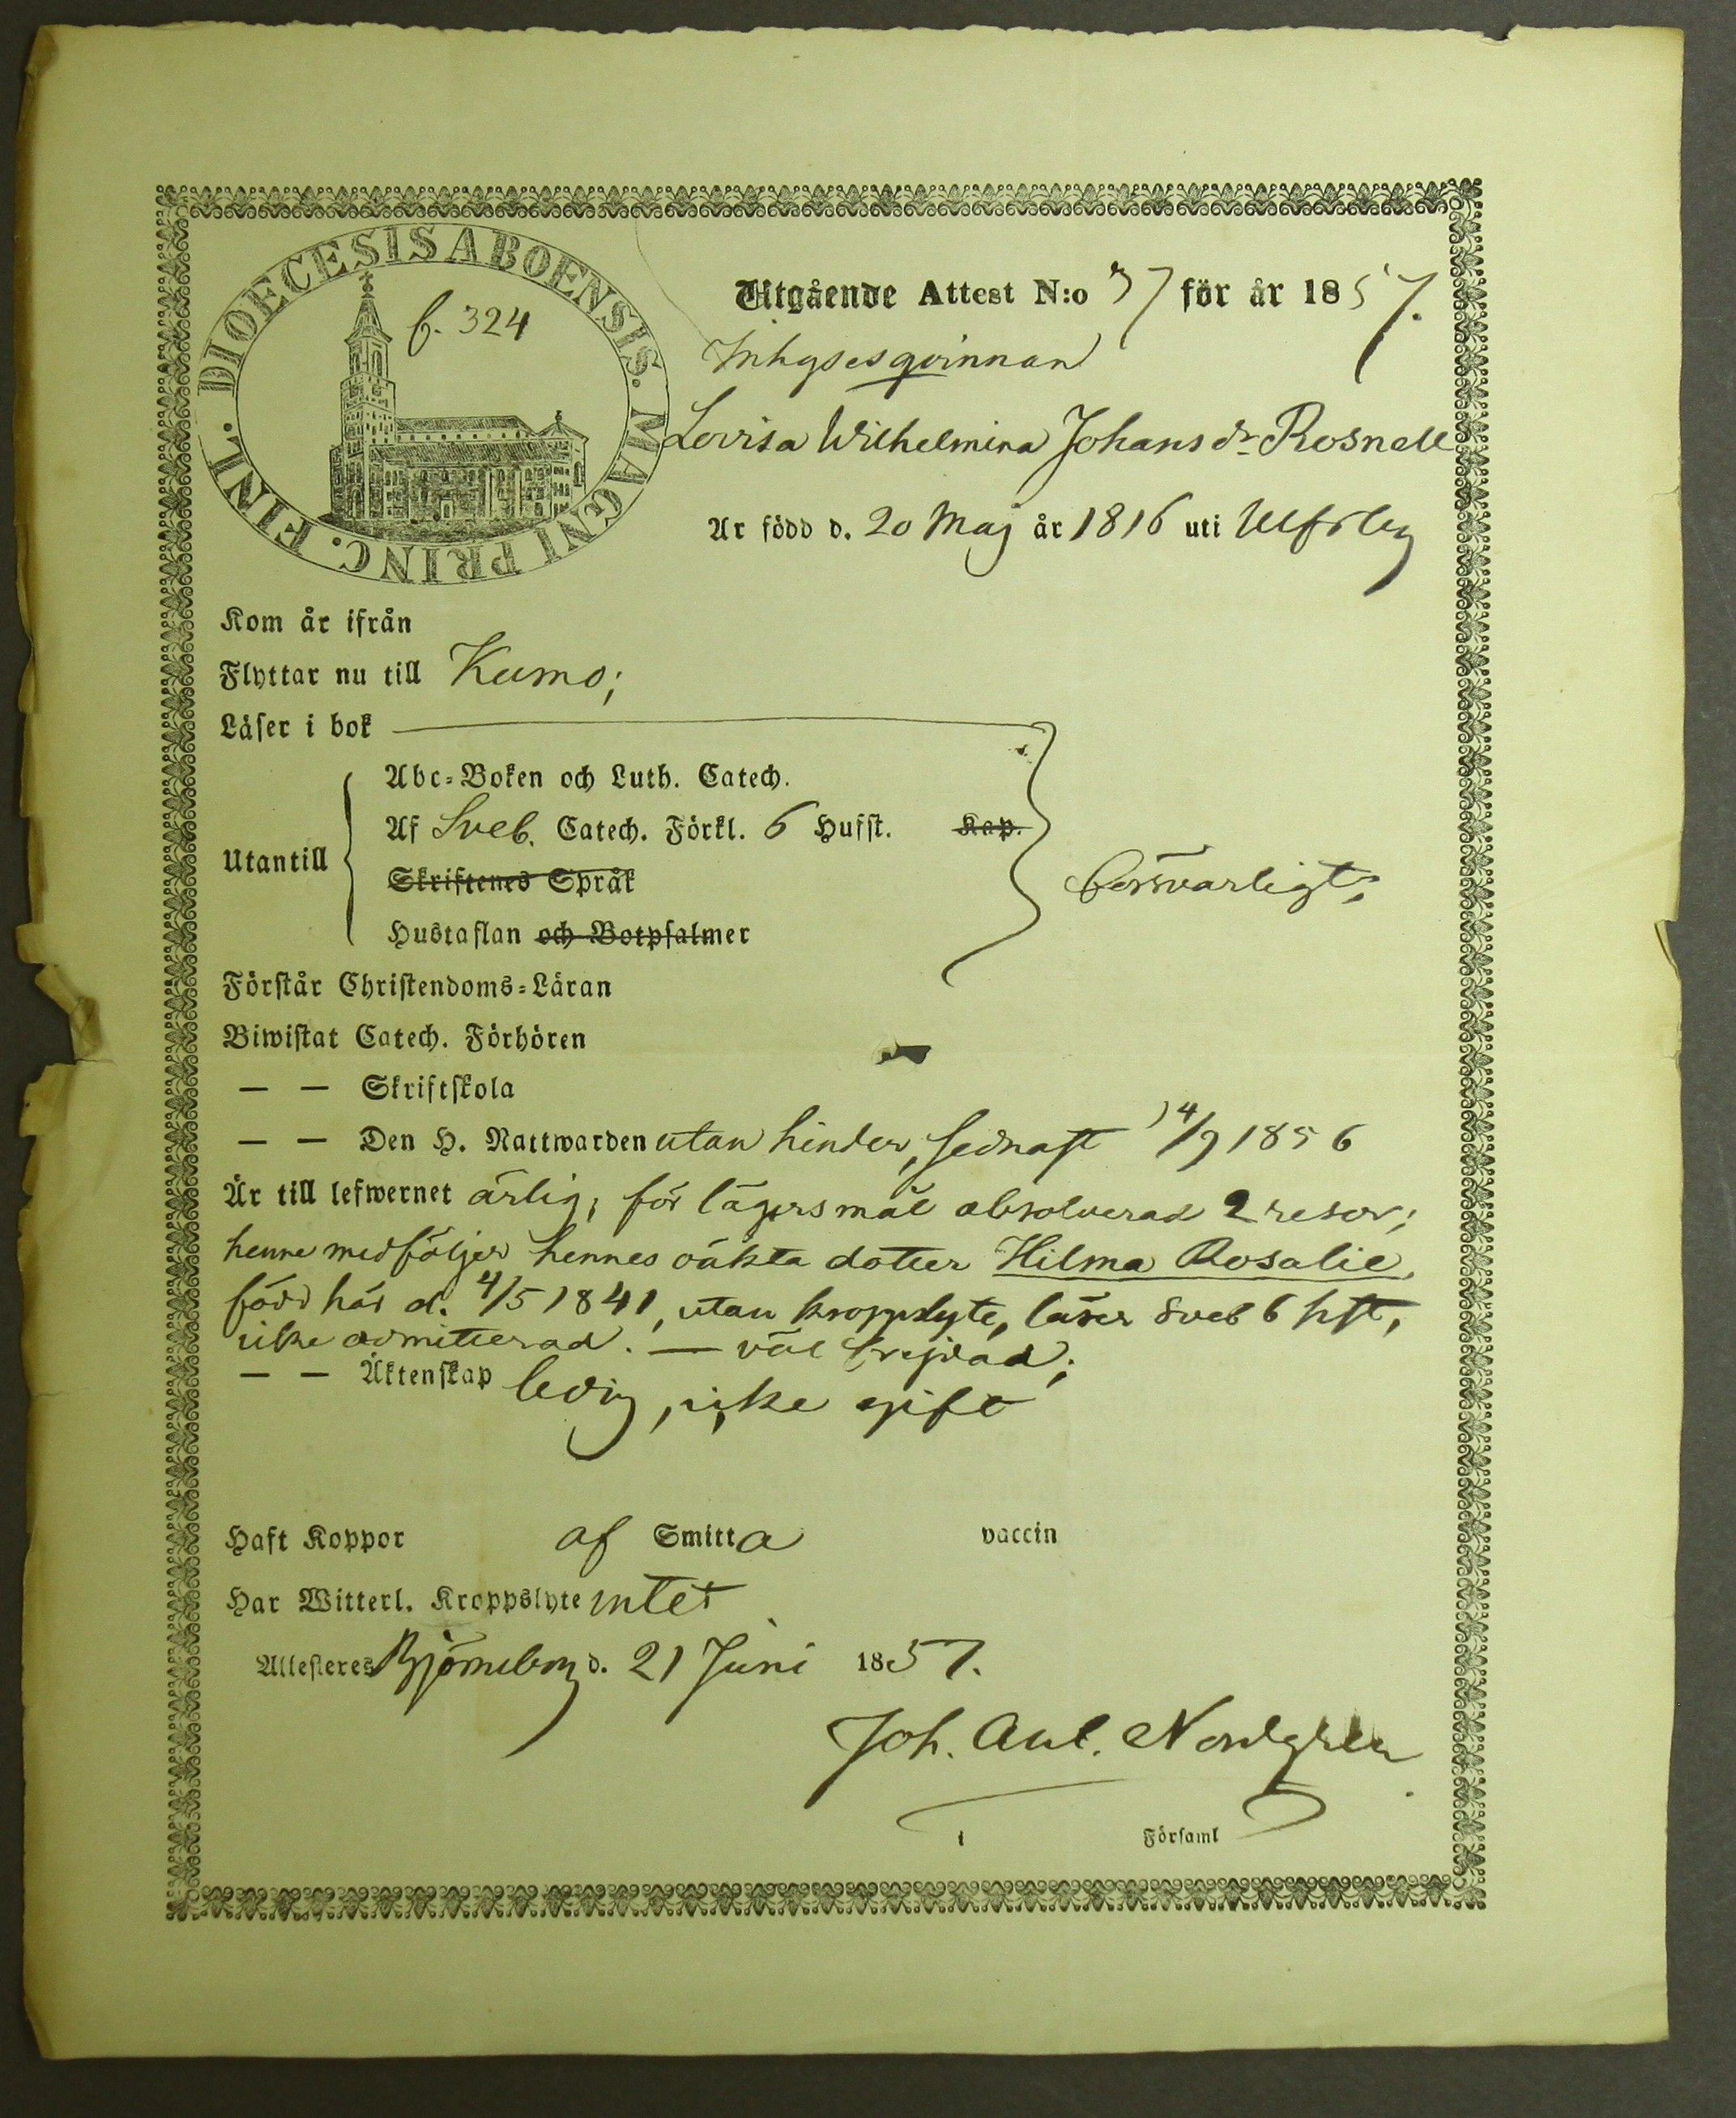 DIOECESIS ABOENSIS. MAGNI PRINC. FINL.
f. 324
Utgående Attest N:o 37 för år 1857.
Inhysesqvinnan
Lovisa Wilhelmina Johansdr Rosnell
Är född d. 20 Maj år 1816 uti Ulfsby
Kom år ifrån
Flyttar nu till Kumo;
Läser i bok
Abc-Boken och Luth. Catech.
Af Sveb. Catech. Förkl. 6 Hufst. Kap.
Utantill
Skriftenes Språk
försvarligt;
Hustaflan och Botpsalmer
Förstår Christendoms-Läran
Biwistat Catech. Förhören
— — Skriftskola
— — Den H. Nattwarden utan hinder, sednast 14/9 1856
Är till lefwernet ärlig, för lägersmål absolverad 2 resor;
henne medföljer hennes oäkta dotter Hilma Rosalie,
född här d. 4/5 1841, utan kroppslyte, läser Sveb 6 hft,
icke admitterad. — väl frejdad;
— — Äktenskap ledig, icke gift
Haft Koppor af Smitta vaccin
Har Witterl. Kroppslyte intet
Attesteres Björneborg d. 21 Juni 1857.
Joh. Aul. Nordgren
i Församl